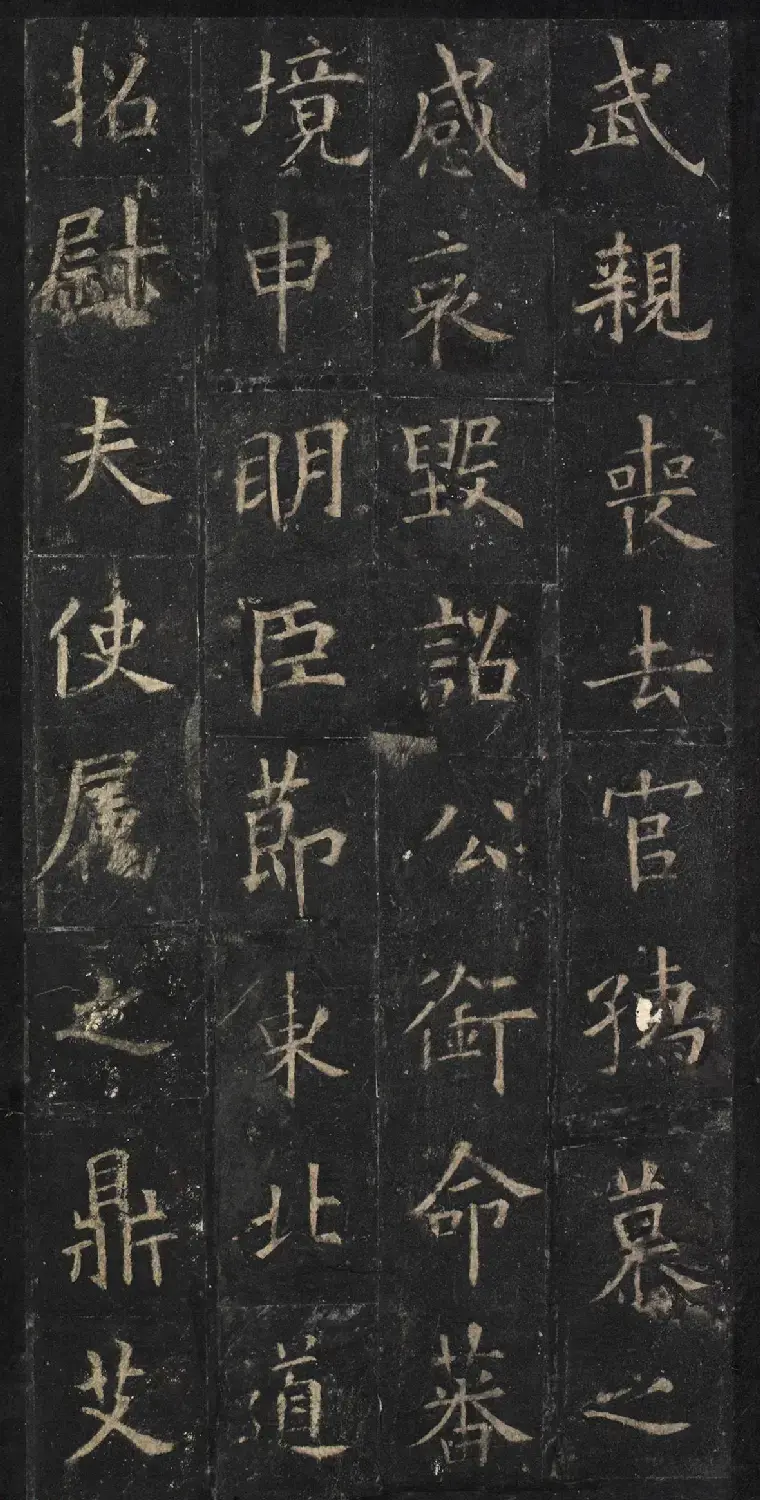 武親喪去官孺慕之
感哀毀詔公銜命蕃
境申明臣節東北道
招慰大使屬之鼎艾